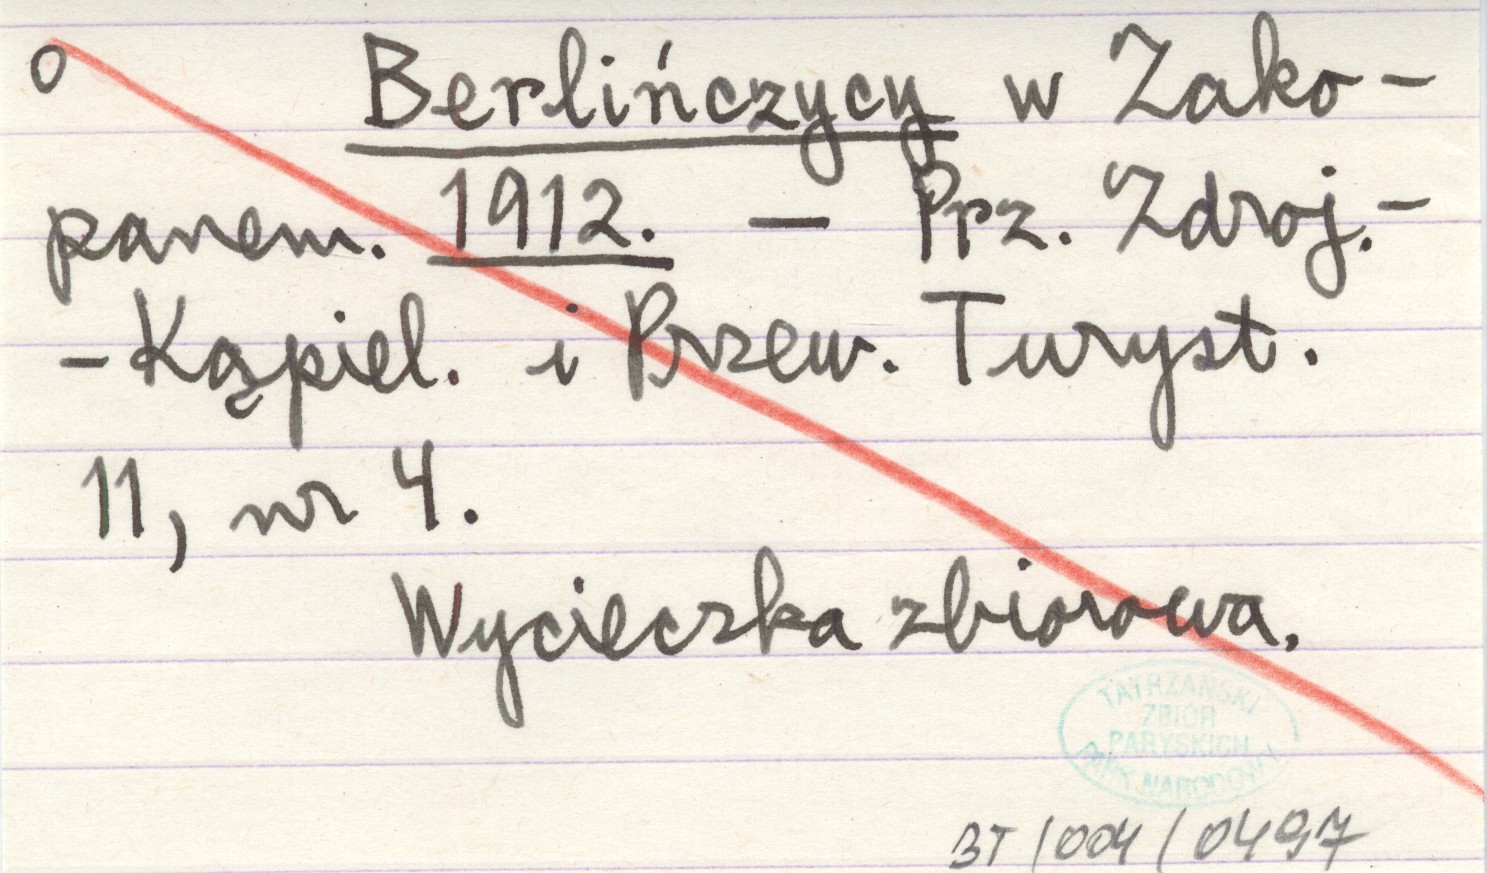 o Berlińczycy w Zako-
panem. 1912. — Prz. Zdroj.-
-Kąpiel. i Przew. Turyst.
11, nr 4.
Wycieczka zbiorowa.
TATRZAŃSKI
ZBIÓR
PARYSKICH
PARK NARODOWY
BT/004/0497